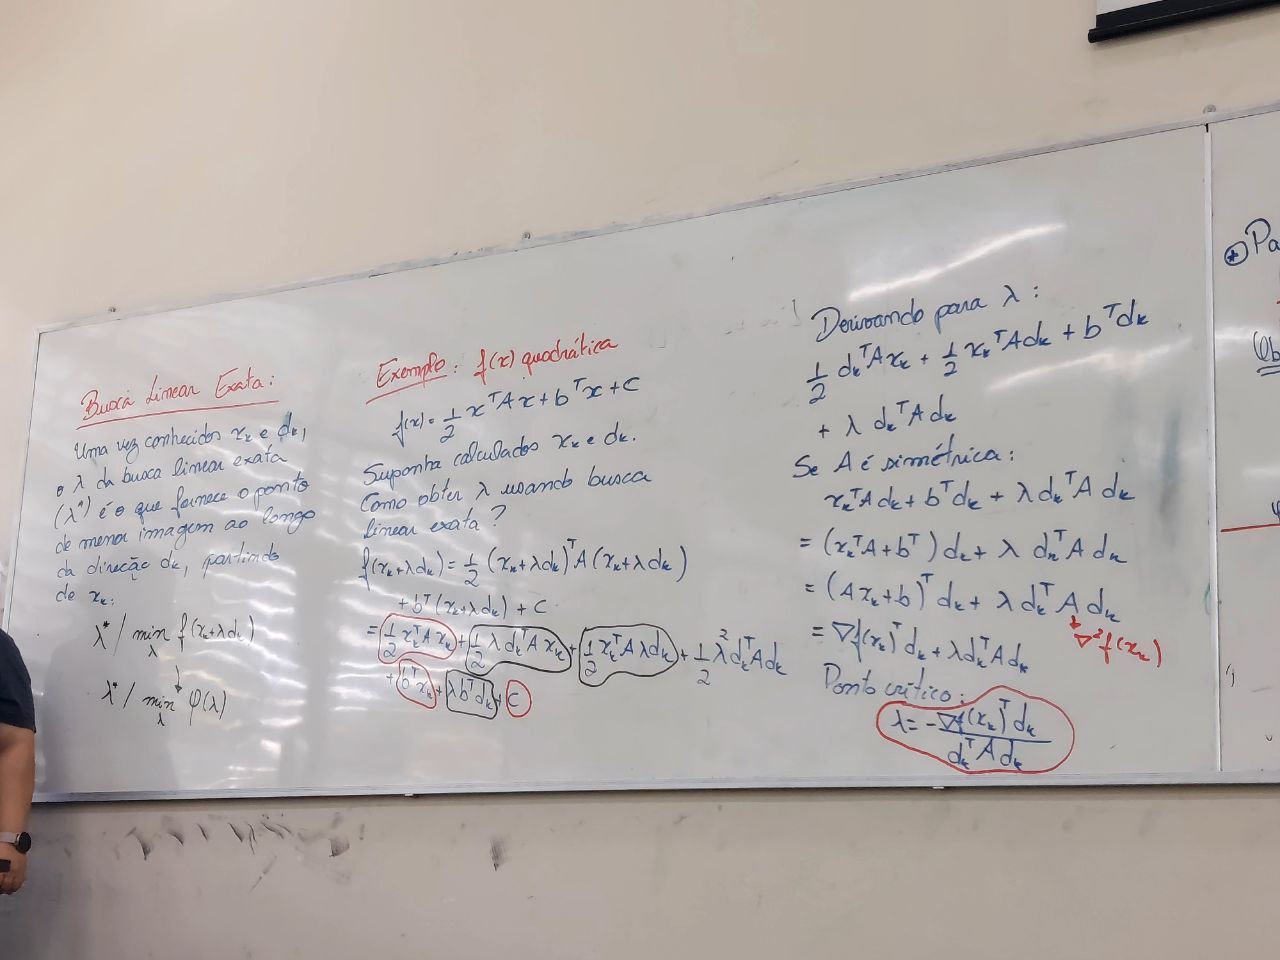 Busca Linear Exata:
Uma vez conhecidos xₖ e dₖ,
o λ da busca linear exata
(λ*) é o que fornece o ponto
de menor imagem ao longo
da direção dₖ, partindo
de xₖ:
λ* / min f(xₖ+λdₖ)
λ
↓
λ* / min φ(λ)
λ
Exemplo: f(x) quadrática
f(x) = 1/2 xᵀAx + bᵀx + C
Suponha calculados xₖ e dₖ.
Como obter λ usando busca
linear exata?
f(xₖ+λdₖ) = 1/2 (xₖ+λdₖ)ᵀA(xₖ+λdₖ)
+ bᵀ(xₖ+λdₖ) + C
= 1/2 xₖᵀAxₖ + 1/2 λdₖᵀAxₖ + 1/2 xₖᵀAλdₖ + 1/2 λ²dₖᵀAdₖ
+ bᵀxₖ + λbᵀdₖ + C
Derivando para λ:
1/2 dₖᵀAxₖ + 1/2 xₖᵀAdₖ + bᵀdₖ
+ λ dₖᵀAdₖ
Se A é simétrica:
xₖᵀAdₖ + bᵀdₖ + λdₖᵀAdₖ
= (xₖᵀA + bᵀ)dₖ + λ dₖᵀAdₖ
= (Axₖ+b)ᵀdₖ + λdₖᵀAdₖ
∇²f(xₖ)
= ∇f(xₖ)ᵀdₖ + λdₖᵀAdₖ
Ponto crítico:
λ = -∇f(xₖ)ᵀdₖ / dₖᵀAdₖ
* Pa